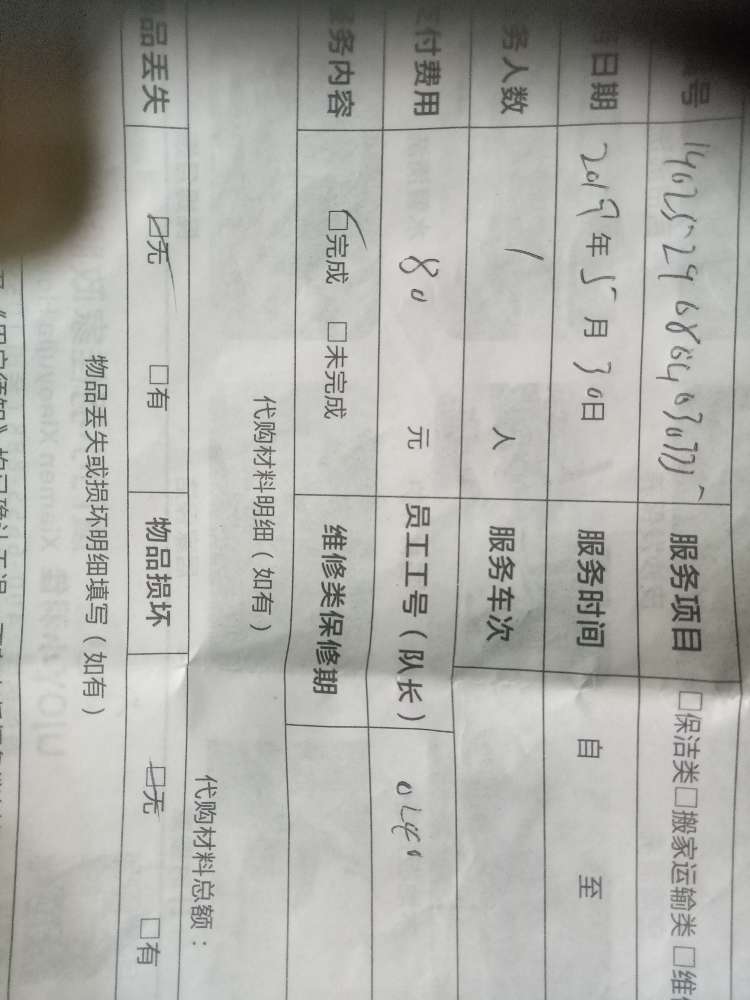 号 服务项目 □保洁类□搬家运输类 □维
日期 2019年5月30日 服务时间 自 至
务人数 1 人 服务车次
付费用 80 元 员工工号(队长)
务内容 □完成 □未完成 维修类保修期
代购材料明细(如有)
代购材料总额:
品丢失 □无 □有 物品损坏 □无 □有
物品丢失或损坏明细填写(如有)